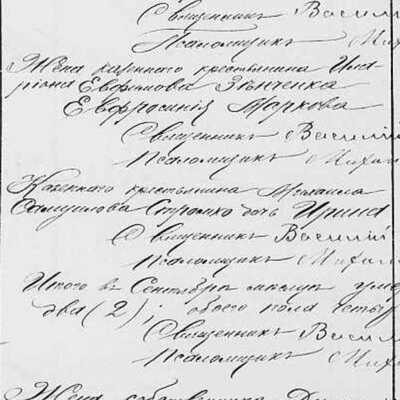 Священникъ Василій
Псаломщикъ Миха
Жена казеннаго крестьянина Ила
ріона Евфимова Зѣнченка
Евфросинія Маркова
Священникъ Василій
Псаломщикъ Михаи
Казеннаго крестьянина Михаила
Самуилова дочь Ирина
Священникъ Василій
Псаломщикъ Михаи
Итого въ Сентябрѣ мѣсяцѣ умер
два (2); обоего пола четыр
Священникъ Васил
Псаломщикъ Миха
Жена собственника